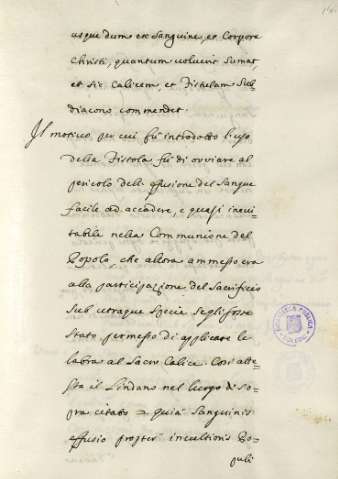 usque dum ex Sanguine, et Corpore
Christi, quantum voluerit Sumat,
et sic Calicem, et Fistulam Sub
diacono commendet.
Il motivo, per cui fù introdotto l'uso
della Fistola fù di ovviare al
pericolo dell'effusione del Sangue
facile ad accadere, e quasi inevi=
tabile nella Communione del
Popolo che allora ammesso era
alla participazione del Sacrificio
Sub utraque Specie se gli fosse
stato permesso di applicare le
labra al Sacro Calice. Così atte=
sta il Lindano nel luogo di so=
pra citato = quia Sanguinis
effusio propter incultioris Po=
puli
BIBLIOTECA PUBLICA
TOLEDO